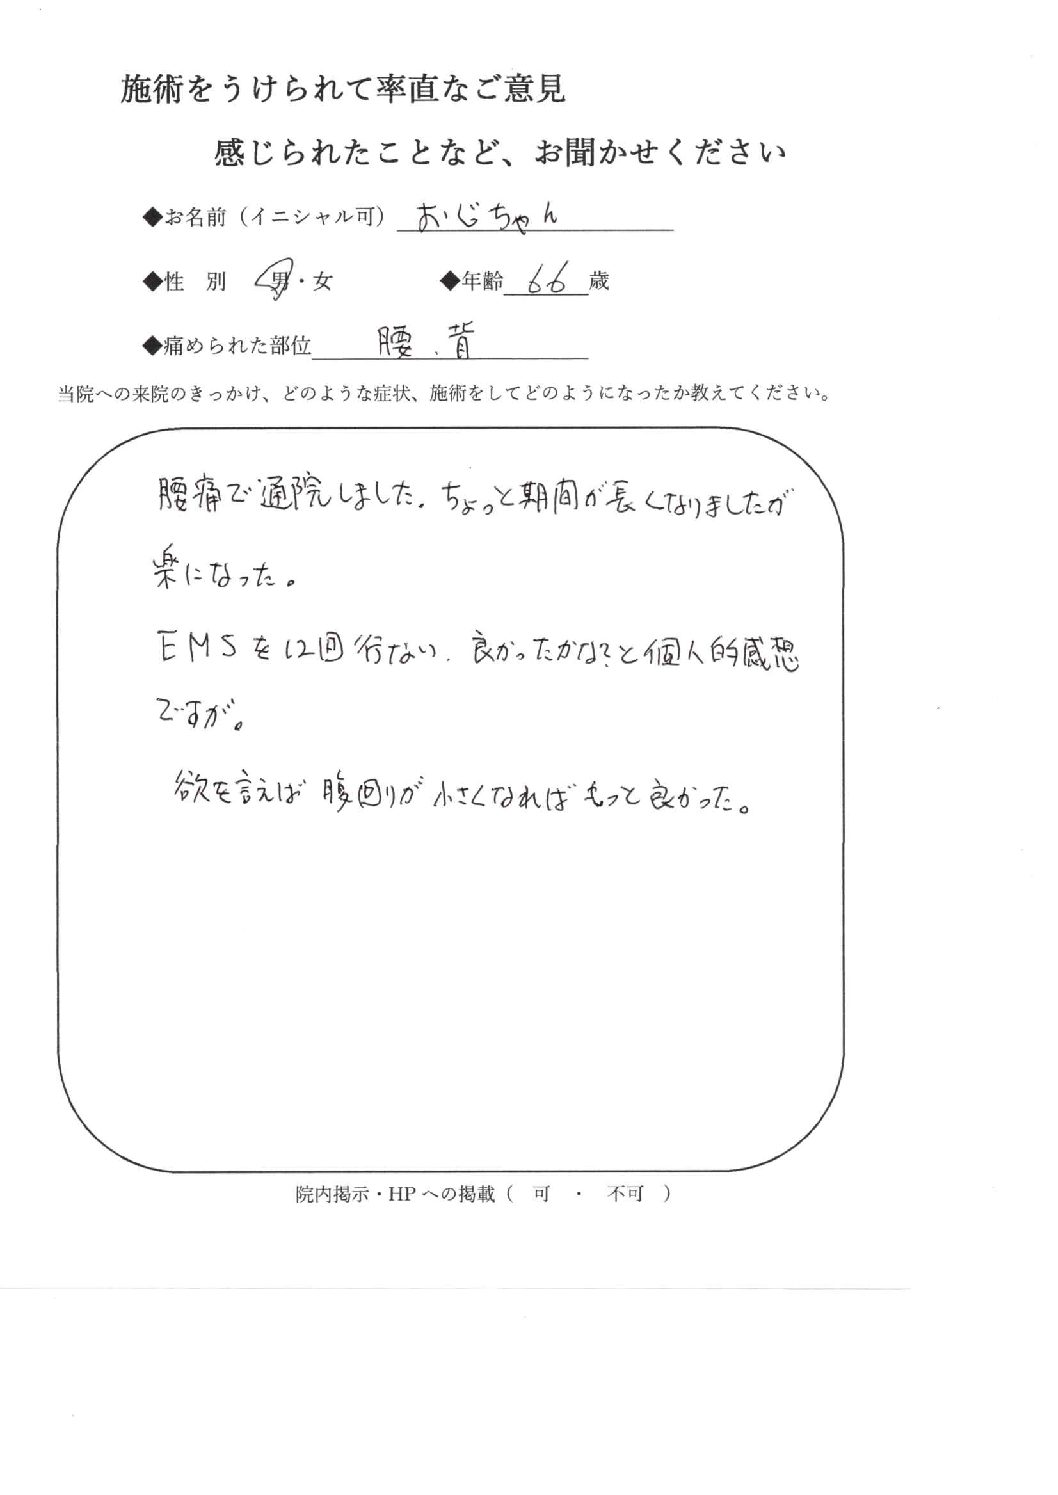 施術をうけられて率直なご意見
感じられたことなど、お聞かせください
◆お名前（イニシャル可） おじちゃん
◆性 別 男・女 ◆年齢 66 歳
◆痛められた部位 腰、背
当院への来院のきっかけ、どのような症状、施術をしてどのようになったか教えてください。
腰痛で通院しました。ちょっと期間が長くなりましたが
楽になった。
EMSを12回行ない、良かったかな?と個人的感想
ですが。
欲を言えば腹回りが小さくなればもっと良かった。
院内掲示・HPへの掲載（ 可 ・ 不可 ）